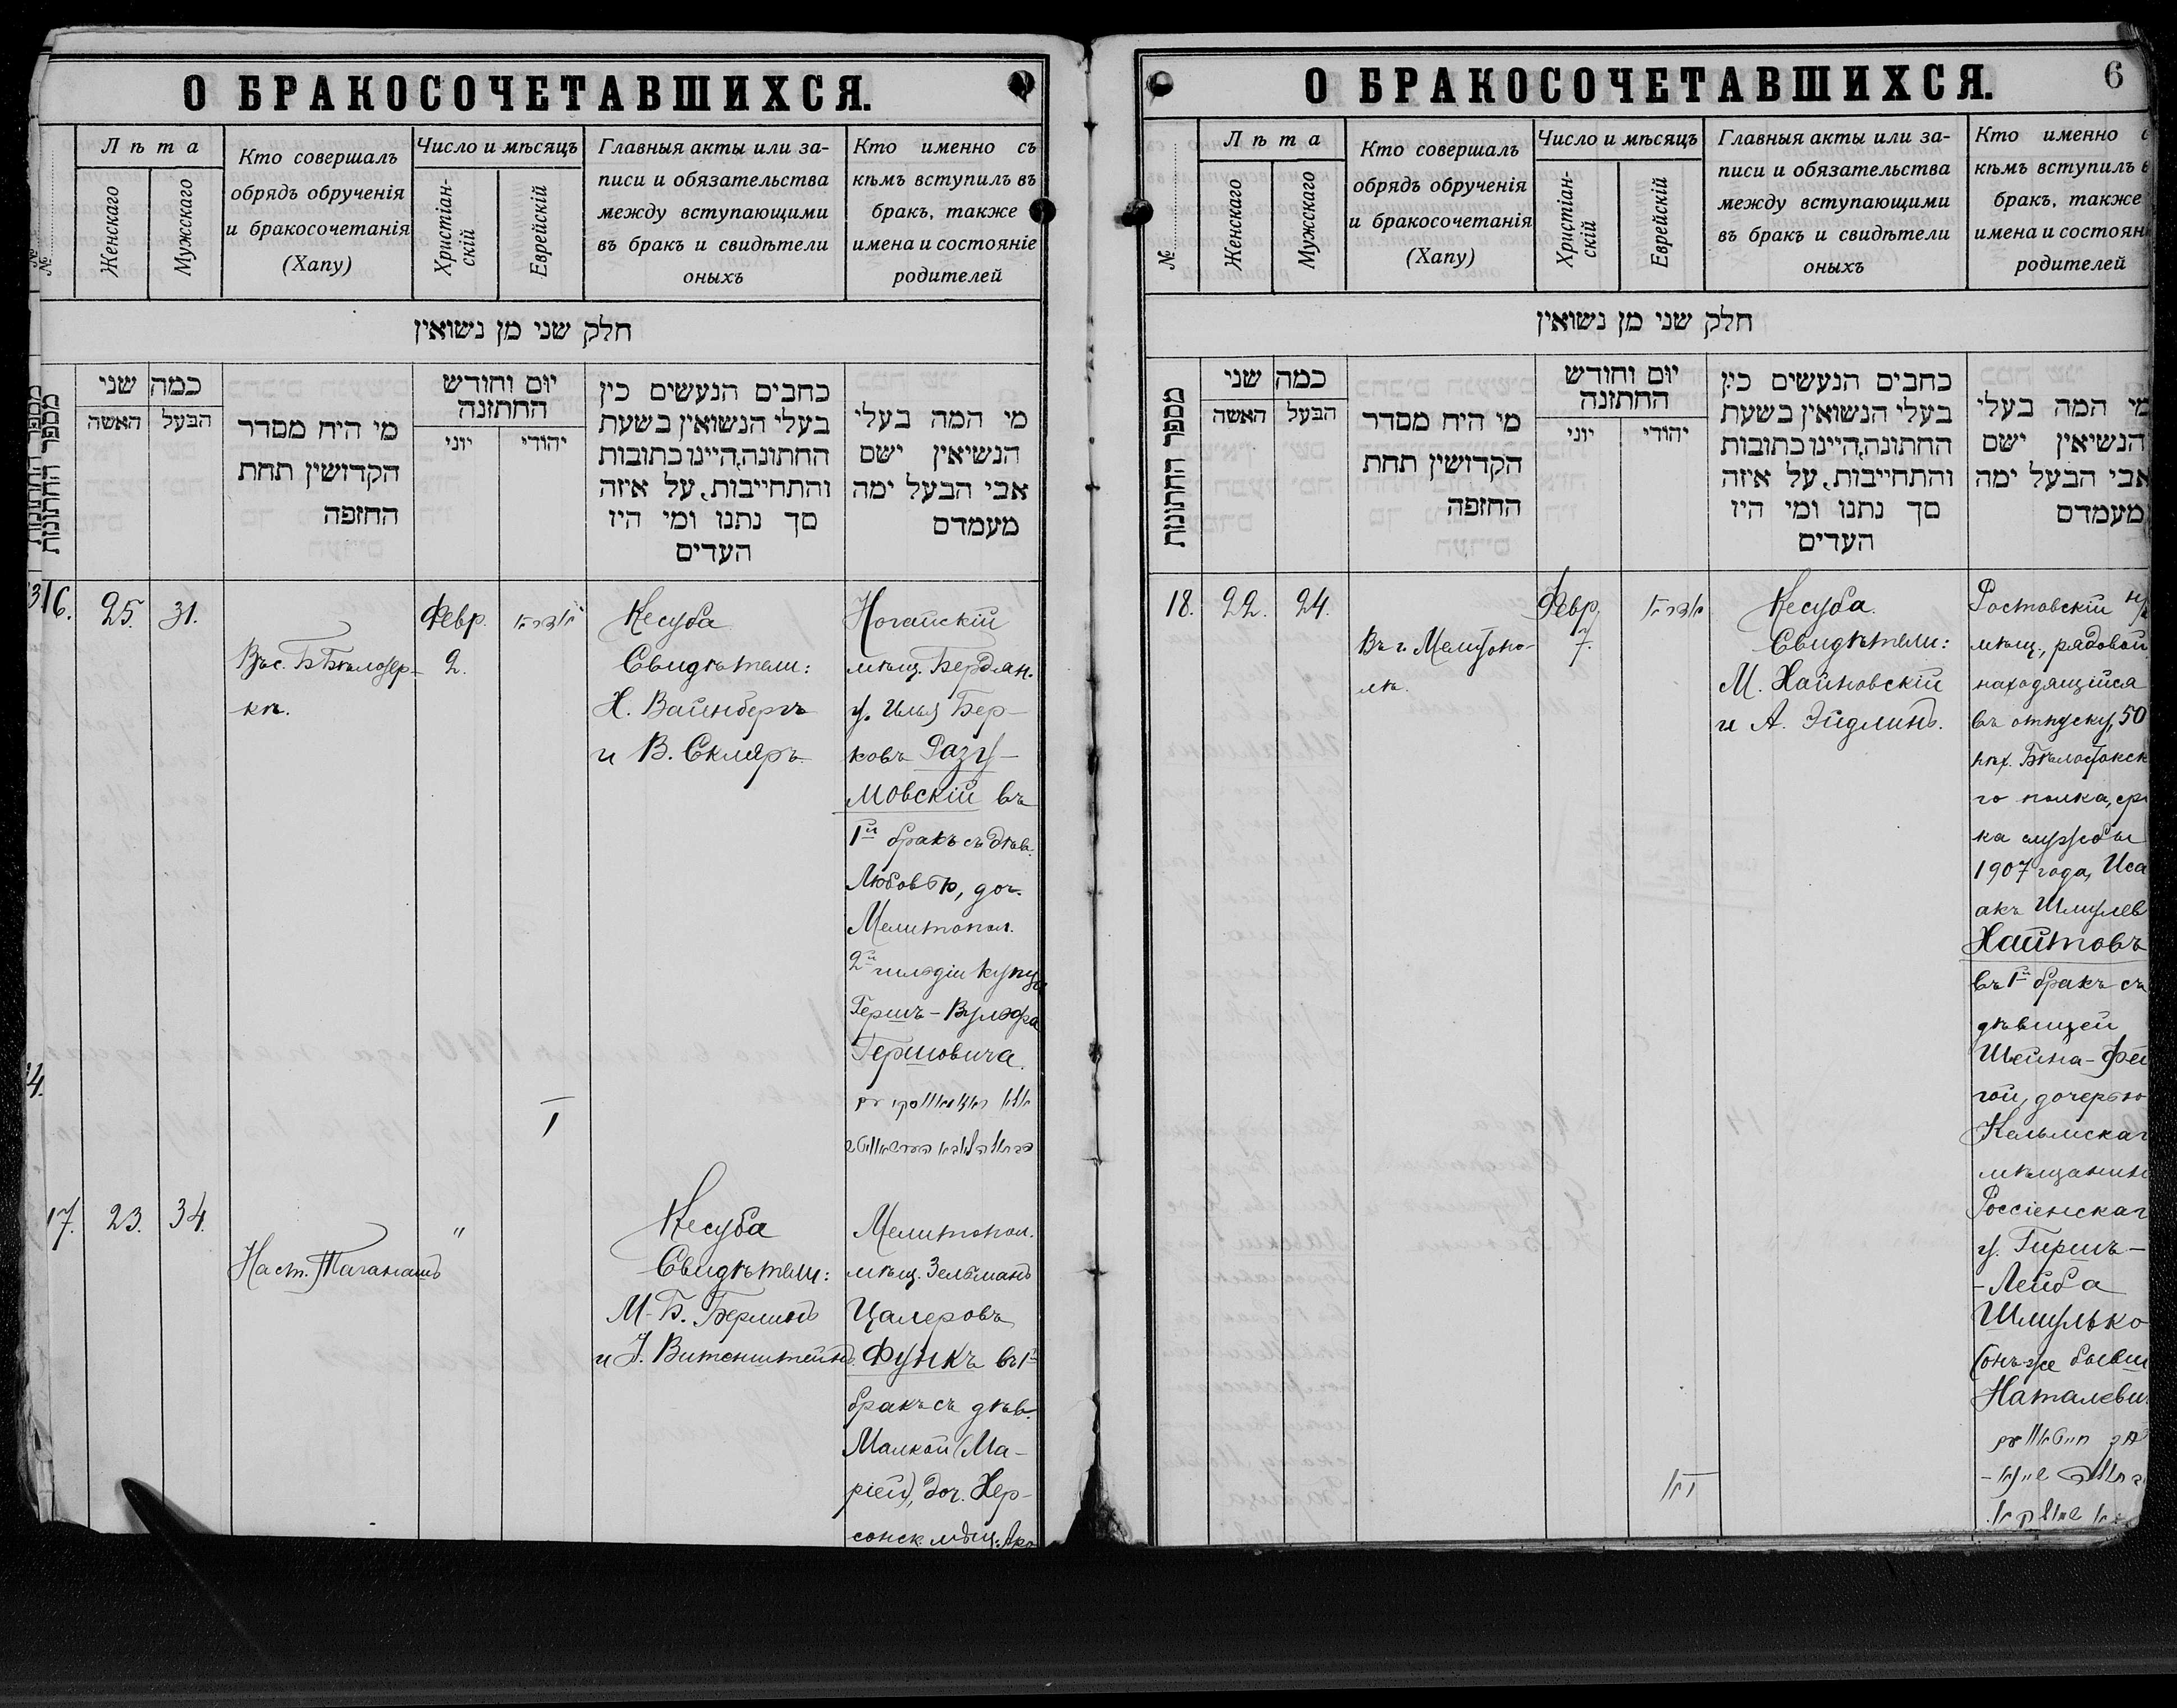 О БРАКОСОЧЕТАВШИХСЯ.
№
Лѣта
Женскаго
Мужскаго
Кто совершалъ
обрядъ обрученія
и бракосочетанія
(Хапу)
Число и мѣсяцъ
Христіан-
скій
Еврейскій
Главныя акты или за-
писи и обязательства
между вступающими
въ бракъ и свидѣтели
оныхъ
Кто именно съ
кѣмъ вступилъ въ
бракъ, также
имена и состояніе
родителей
חלק שני מן נשואין
מספר החתונות
כמה שני
האשה
הבעל
מי היה מסדר
הקדושין תחת
החופה
יום וחודש
החתונה
יוני
יהודי
כתבים הנעשים בין
בעלי הנשואין בשעת
החתונה, היינו כתובות
והתחייבות, על איזה
סך נתנו ומי היו
העדים
מי המה בעלי
הנשיאין ישם
אבי הבעל ימה
מעמדם
16.
25.
31.
Въ с. Б Бѣлозер-
кѣ.
Февр.
2.
Кесуба
Свидѣтели:
Х. Вайнбергъ
и В. Скляръ
Ногайскій
мѣщ. Бердян.
у. Илья Бер-
ковъ Разу-
мовскій въ
1й бракъ съ дѣв.
Любовью, доч.
Мелитопол.
2й гильдіи купца
Гершъ-Вульфа
Гершовича.
17.
23.
34.
На ст. Таганашъ
"
Кесуба
Свидѣтели:
М-Б. Берлинъ
и Витенштейнъ
Мелитопол.
мѣщ. Зельманъ
Цалеровъ
Функъ въ 1й
бракъ съ дѣв.
Малкой (Ма-
ріей), доч. Хер-
сонск. мѣщ.
О БРАКОСОЧЕТАВШИХСЯ.
6
№
Лѣта
Женскаго
Мужскаго
Кто совершалъ
обрядъ обрученія
и бракосочетанія
(Хапу)
Число и мѣсяцъ
Христіан-
скій
Еврейскій
Главныя акты или за-
писи и обязательства
между вступающими
въ бракъ и свидѣтели
оныхъ
Кто именно с
кѣмъ вступилъ в
бракъ, также
имена и состоян
родителей
חלק שני מן נשואין
מספר החתונות
כמה שני
האשה
הבעל
מי היה מסדר
הקדושין תחת
החופה
יום וחודש
החתונה
יוני
יהודי
כתבים הנעשים בין
בעלי הנשואין בשעת
החתונה, היינו כתובות
והתחייבות, על איזה
סך נתנו ומי היו
העדים
מי המה בעלי
הנשיאין ישם
אבי הבעל ימה
מעמדם
18.
22.
24.
Въ г. Мелитопо-
лѣ.
Февр.
7.
Кесуба.
Свидѣтели:
М. Хайновскій
и А. Эйдлинъ.
Ростовскій н/
мѣщ., рядовой
находящійся
въ отпуску, 50
пѣх. Бѣлостокск
го полка, сро
ка службы
1907 года, Иса
акъ Шмулев
Хаитовъ
въ 1й бракъ съ
дѣвицей
Шейна-Фей
гой, дочерью
Кельмскаг
мѣщанин
Россіенскаг
у. Гиршъ-
-Лейба
Шмулько
(онъ же бывш
Наталеви